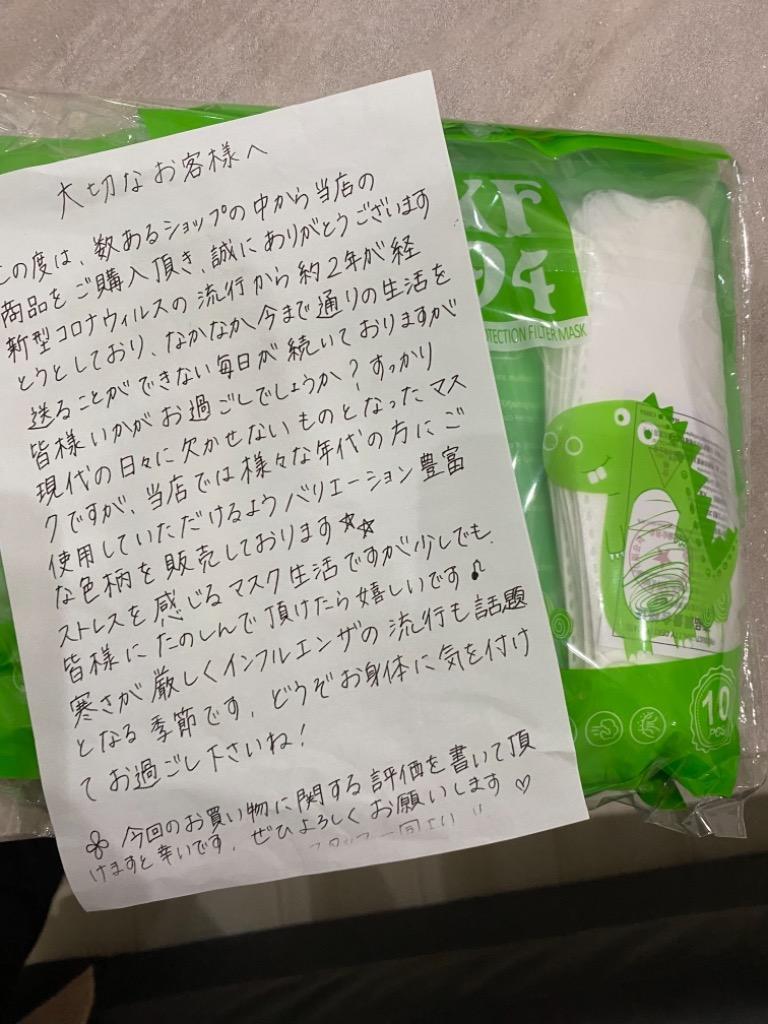 大切なお客様へ
この度は、数あるショップの中から当店の
商品をご購入頂き、誠にありがとうございます
新型コロナウィルスの流行から約2年が経
とうとしており、なかなか今まで通りの生活を
送ることができない毎日が続いておりますが
皆様いかがお過ごしでしょうか?すっかり
現代の日々に欠かせないものとなったマス
クですが、当店では様々な年代の方にご
使用していただけるようバリエーション豊富
な色柄を販売しております☆☆
ストレスを感じるマスク生活ですが少しでも
皆様にたのしんで頂けたら嬉しいです♪
寒さが厳しくインフルエンザの流行も話題
となる季節です、どうぞお身体に気を付け
てお過ごし下さいね!
今回のお買い物に関する評価を書いて頂
けますと幸いです、ぜひよろしくお願いします♡
スタッフ一同より
94
FILTER MASK
10
PCS